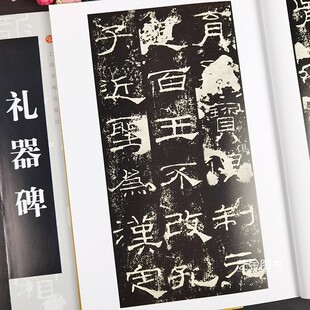 育孔寶俱制元
道百王不改孔
子近聖為漢定
礼器碑